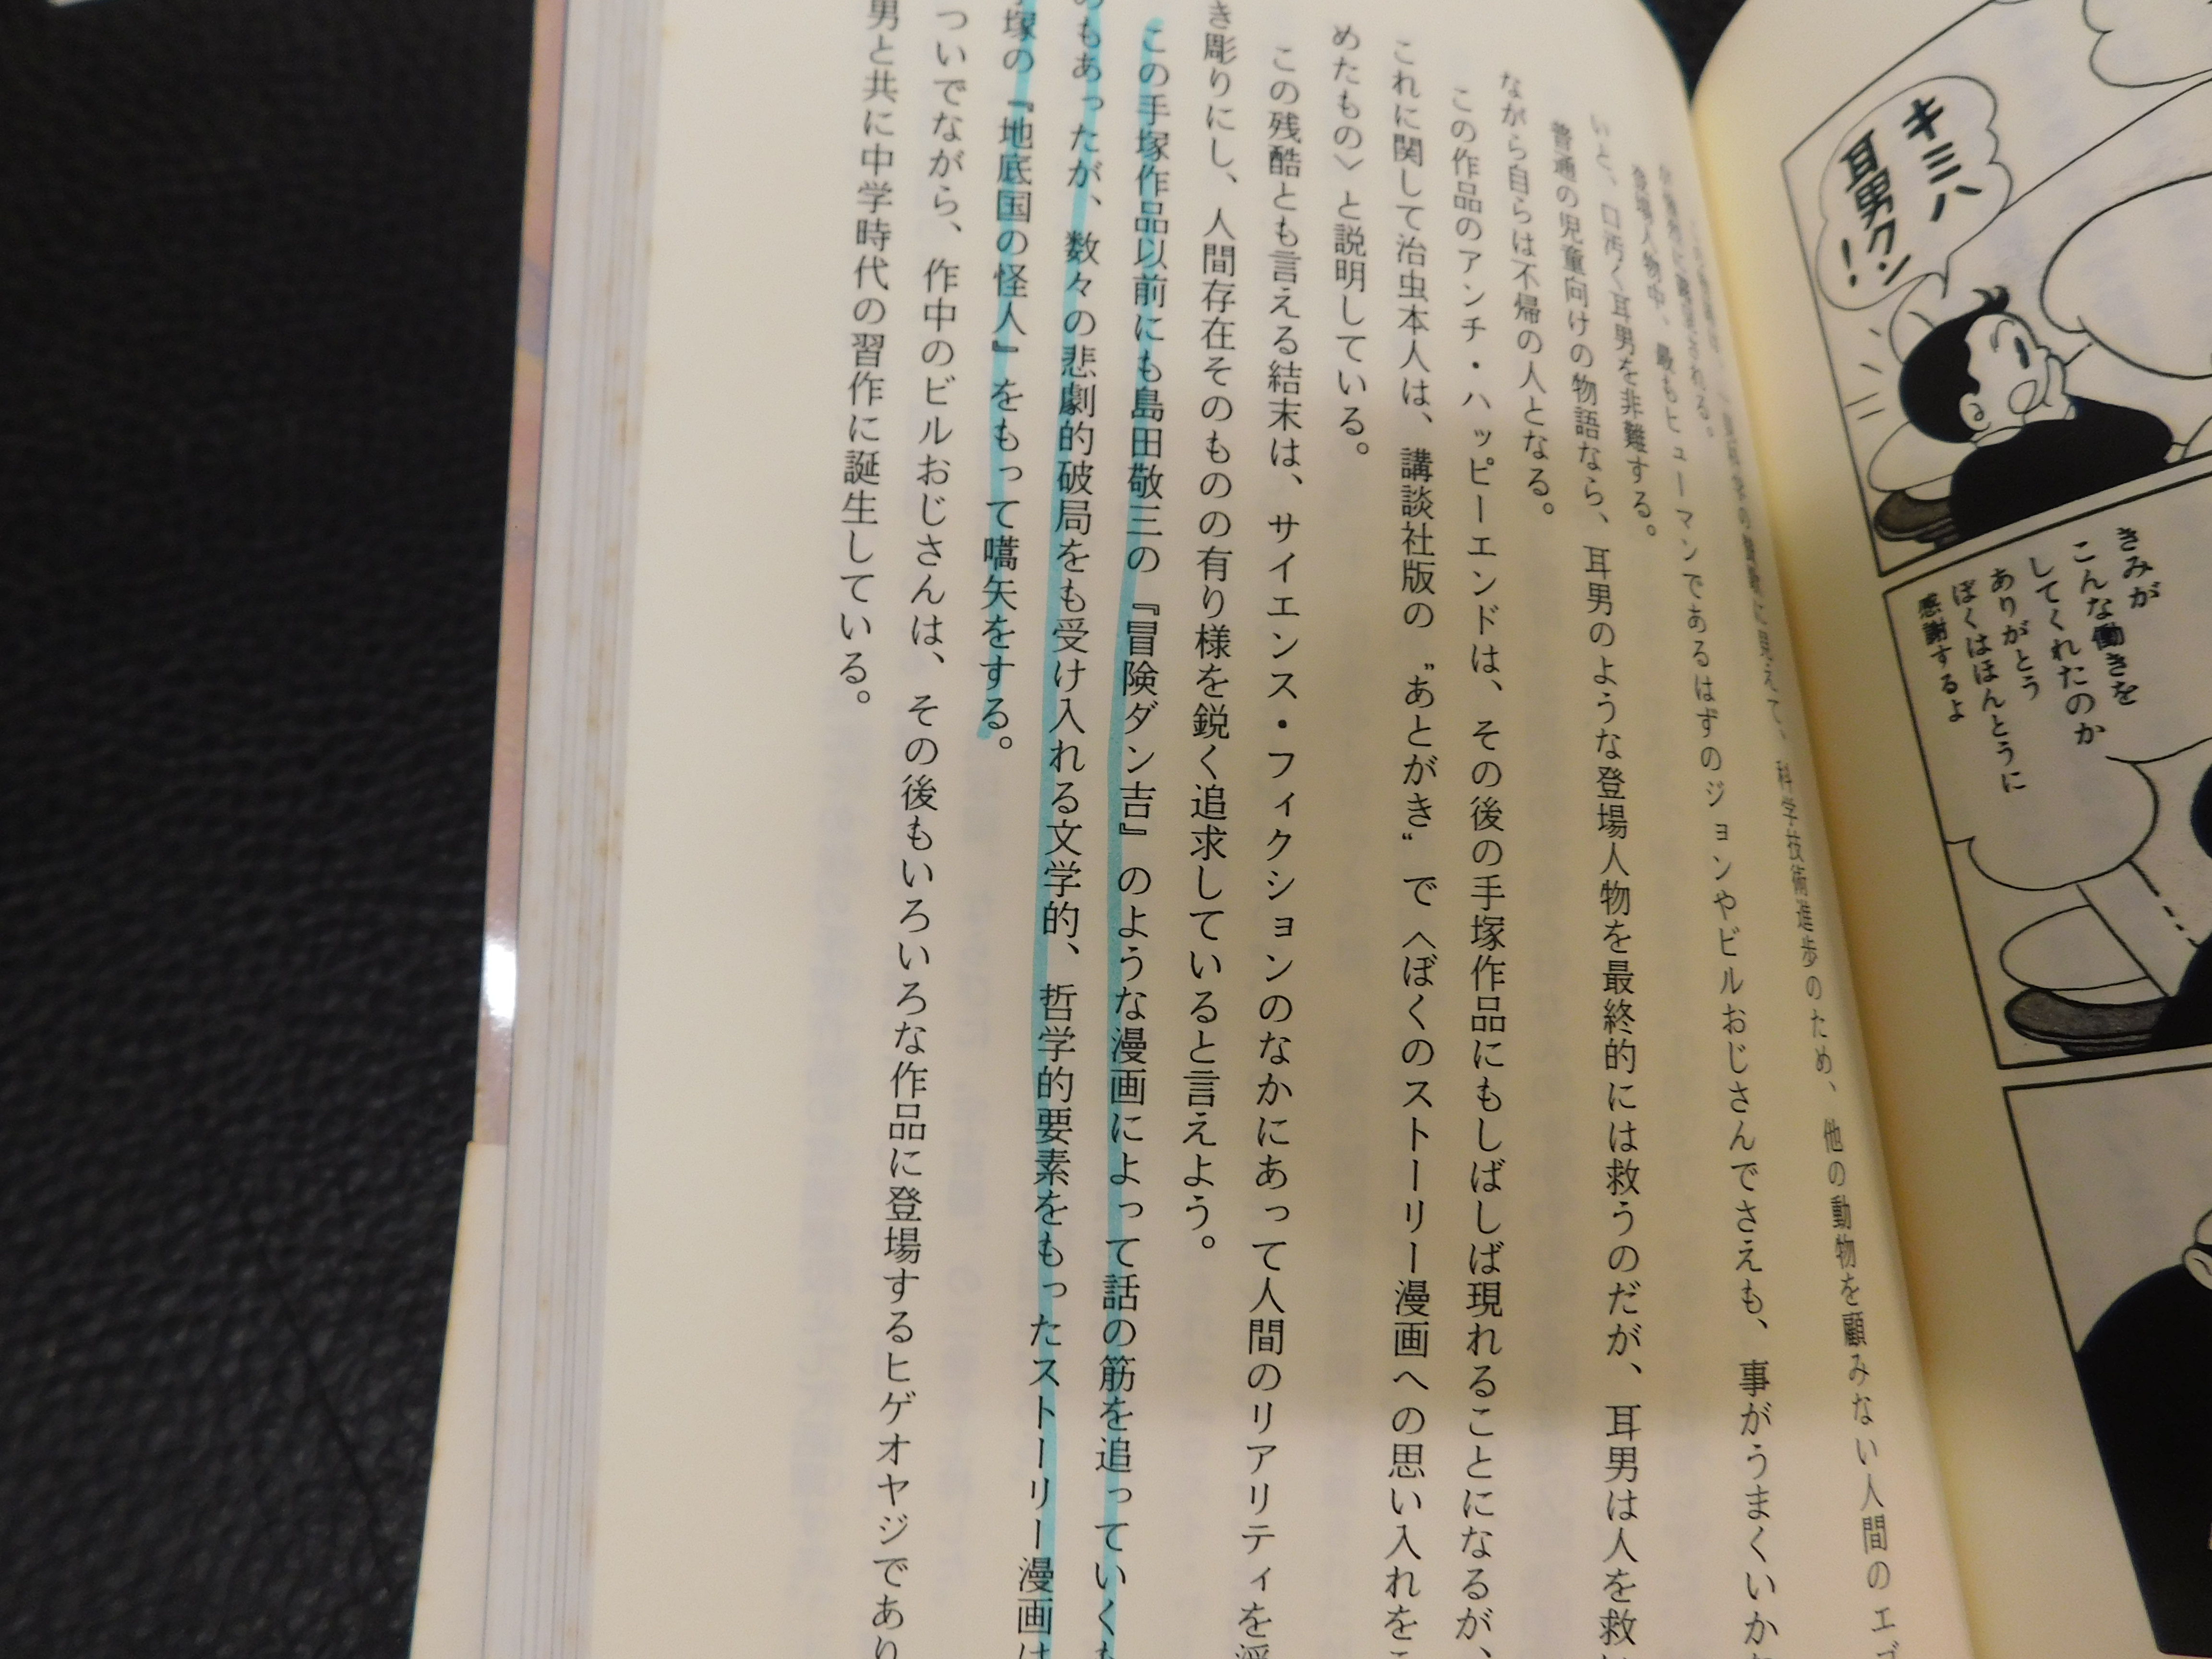 キミハ
耳男クン
！
きみが
こんな働きを
してくれたのか
ありがとう
ぼくはほんとうに
感謝するよ
に見えて、科学技術進歩のため、他の動物を顧みない人間のエゴ
される。
登場人物中、最もヒューマンであるはずのジョンやビルおじさんでさえも、事がうまくいか
いと、口汚く耳男を非難する。
普通の児童向けの物語なら、耳男のような登場人物を最終的には救うのだが、耳男は人を救い
ながら自らは不帰の人となる。
この作品のアンチ・ハッピーエンドは、その後の手塚作品にもしばしば現れることになるが、
これに関して治虫本人は、講談社版の〝あとがき〟で〈ぼくのストーリー漫画への思い入れをこ
めたもの〉と説明している。
この残酷とも言える結末は、サイエンス・フィクションのなかにあって人間のリアリティを浮
き彫りにし、人間存在そのものの有り様を鋭く追求していると言えよう。
この手塚作品以前にも島田敬三の『冒険ダン吉』のような漫画によって話の筋を追っていくも
のもあったが、数々の悲劇的破局をも受け入れる文学的、哲学的要素をもったストーリー漫画は
手塚の『地底国の怪人』をもって嚆矢をする。
ついでながら、作中のビルおじさんは、その後もいろいろな作品に登場するヒゲオヤジであり
男と共に中学時代の習作に誕生している。